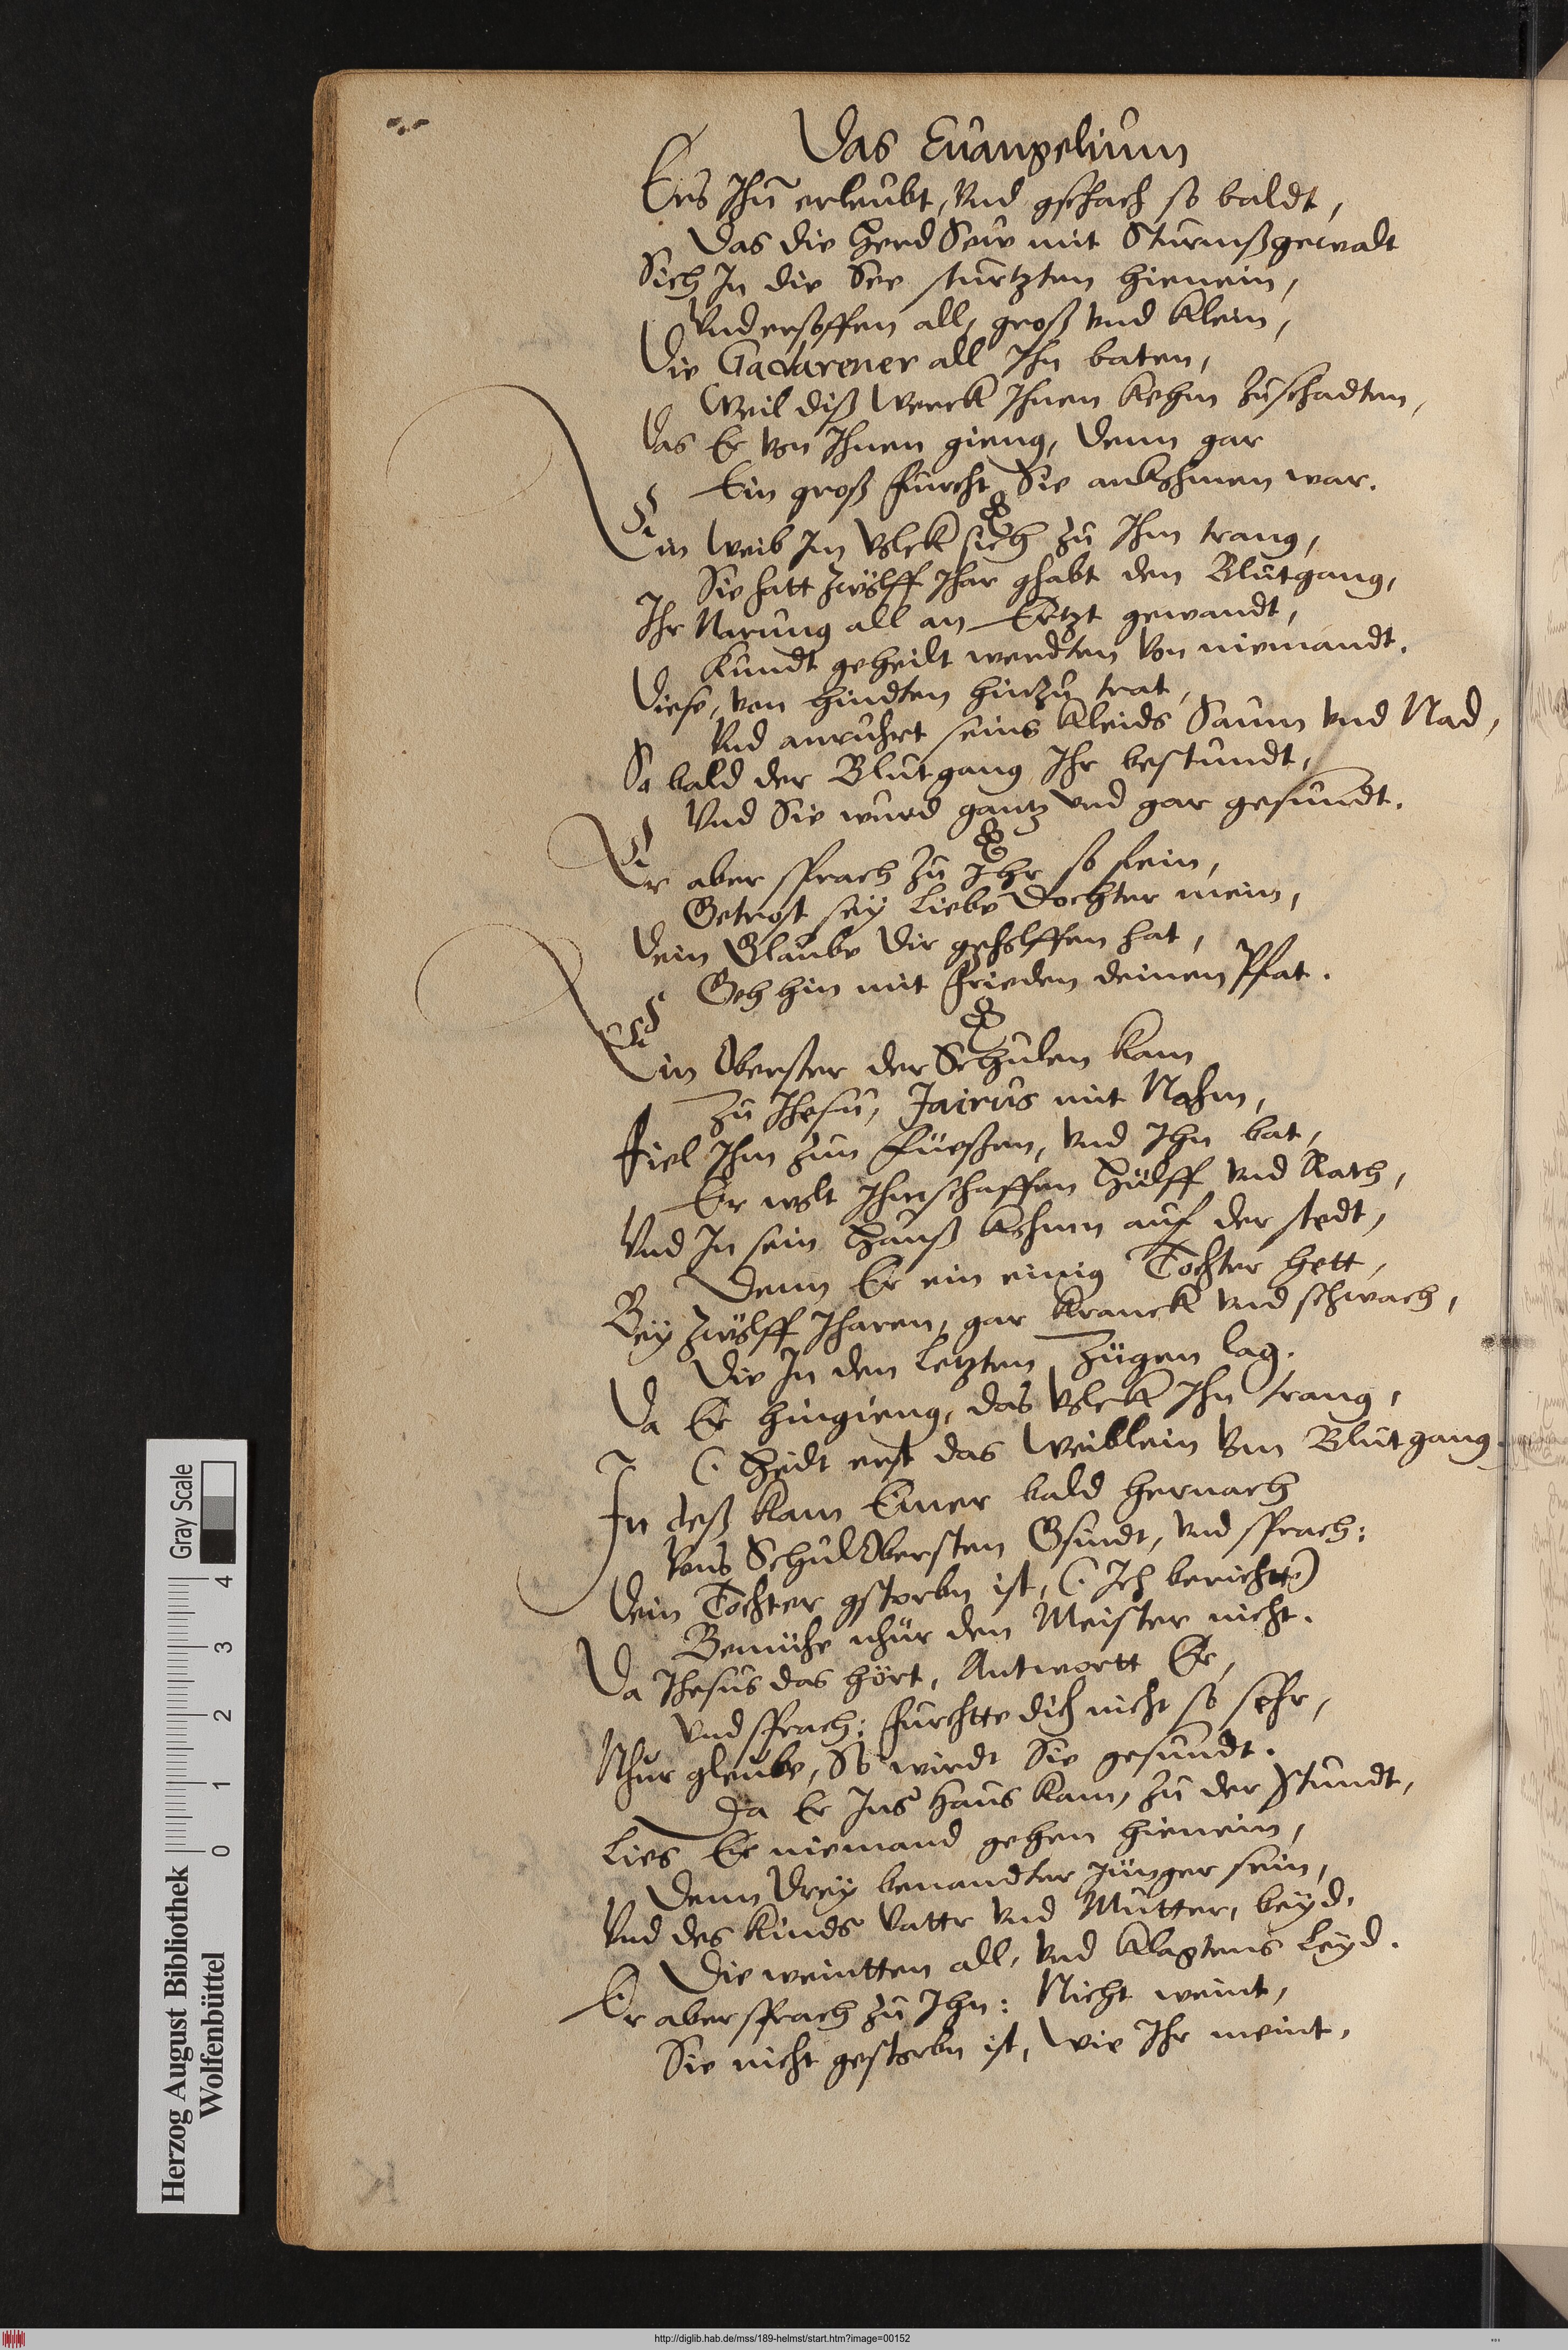 Das Euangelium
Ers Ihn̄ erleubt, Vnd gschach so baldt,
Das die Herd Sew mit Sturmßgewalt
Sich In die See sturtzten hienein,
Vnd ersoffen all, groß vnd klein,
Die Gadarener all Ihn baten,
Weil diß Werck Ihnen kehm zuschadten,
Das Er von Ihnen gieng, denn gar
Ein groß furcht Sie ankohmen war.
Ein Weib Im Volck sich zu Ihm trang,
Sie hatt zwölff Ihar ghabt den Blutgang,
Ihr Narung all an Ertzt gewandt,
Kundt geheilt werdten von niemandt.
Diese, von hindten hinzu trat,
Vnd anruhrt seins Kleids Saum vnd Nad,
So bald der Blutgang Ihr bestundt,
Vnd Sie wurd gantz vnd gar gesundt.
Er aber sprach zu Ihr so fein,
Getrost sey liebe Dochter mein,
Dein Glaube dir geholffen hat,
Geh hin mit frieden deinen Pfat.
Ein Oberster der Schulen kam
Zu Ihesu, Jairus mit Nahm,
Fiel Ihm zun füessen, vnd Ihn bat,
Er wolt Ihm schaffen Hülff vnd Rath,
Vnd In sein Hauß kohmen auf der stedt,
Denn Er ein einig Tochter hett,
Bey zwölff Iharen, gar kranck vnd schwach,
Die In den letzten Zügen lag.
Da Er hingieng, das Volck Ihn trang,
(Heilt erst das Weiblein vom Blutgang.
In deß kam Einer bald hernach
Vons Schul Obersten Gsindt, vnd sprach:
Dein Tochter gstorbn ist, (Ich bericht)
Bemühe nhur den Meister nicht.
Da Ihesus das hört, Antwortt Er,
Vnd sprach: furchtte dich nicht so sehr,
Nhur gleube, So wirdt Sie gesundt.
Da Er Ins Haus kam, zu der stundt,
Lies Er niemand gehen hienein,
Denn drey benandter Jünger sein,
Vnd des Kinds Vattr vnd Mutter, beyd.
Die weintten all, vnd klagtens Leyd.
Er aber sprach zu Ihn: Nicht weint,
Sie nicht gestorbn ist, Wie Ihr meint.
Herzog August Bibliothek
Wolfenbüttel
Gray Scale
0 1 2 3 4
http://diglib.hab.de/mss/189-helmst/start.htm?image=00152